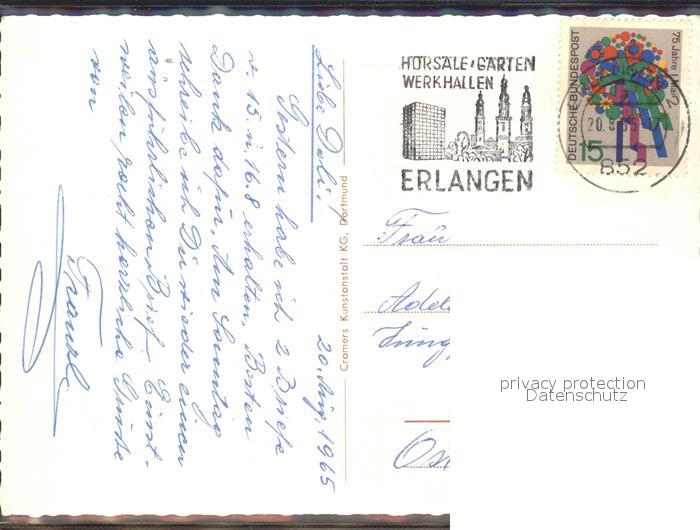 20. Aug. 1965
Liebe Dali!
Gestern habe ich 2 Briefe
v. 15. u. 16.8 erhalten. Besten
Dank dafür. Am Sonntag
schreibe ich Dir wieder einen
ausführlichen Brief. Einst-
weilen recht herzliche Grüße
von
Cramers Kunstanstalt KG, Dortmund
HÖRSÄLE·GÄRTEN
WERKHALLEN
ERLANGEN
DEUTSCHE BUNDESPOST
15
75 Jahre 1. Mai
20.8.65
852
Frau
privacy protection
Datenschutz